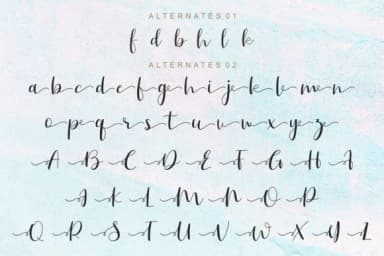 ALTERNATES 01
f d b h l k
ALTERNATES 02
a b c d e f g h i j k l m n
o p q r s t u v w x y z
A B C D E F G H I
J K L M N O P
Q R S T U V W X Y Z